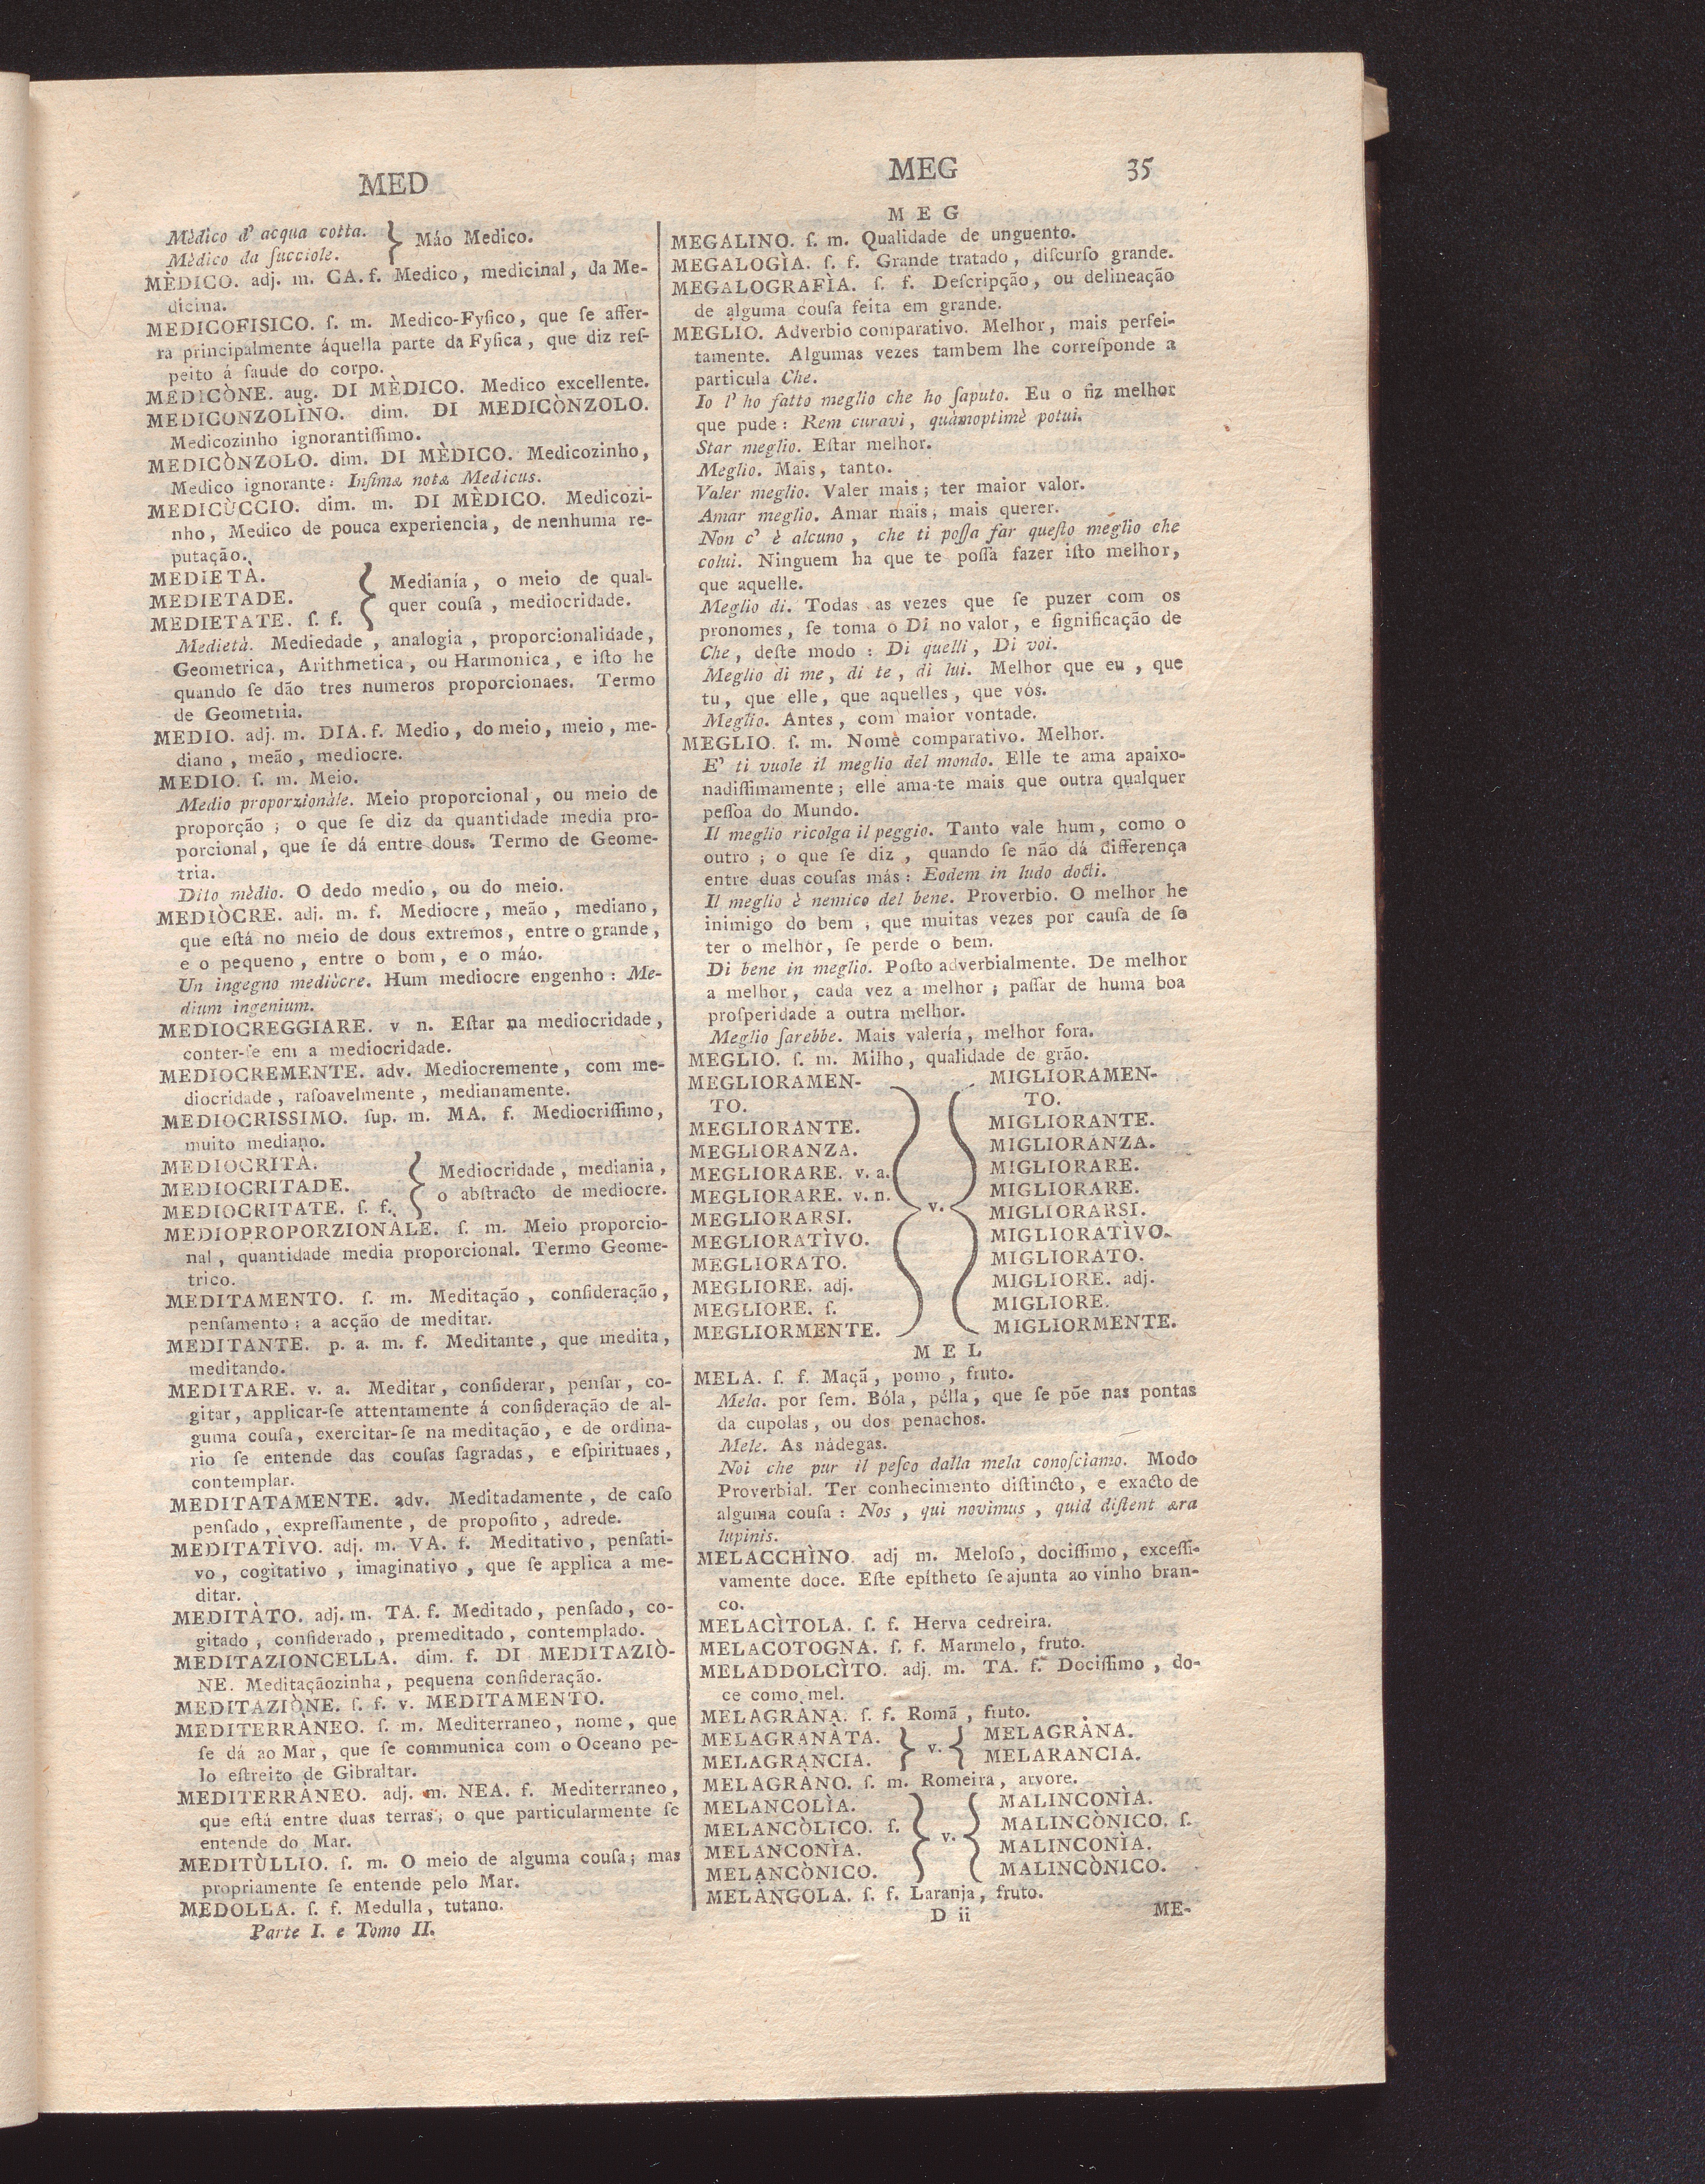 MED
Mèdico d' acqua cotta. } Máo Medico.
Mèdico da ſucciole.
MÈDICO. adj. m. CA. f. Medico, medicinal, da Me-
dicina.
MEDICOFISICO. ſ. m. Medico-Fyſico, que ſe aſſer-
ra principalmente áquella parte da Fyſica, que diz reſ-
peito á ſaude do corpo.
MEDICÒNE. aug. DI MÈDICO. Medico excellente.
MEDICONZOLÌNO. dim. DI MEDICÒNZOLO.
Medicozinho ignorantiſſimo.
MEDICÒNZOLO. dim. DI MÈDICO. Medicozinho,
Medico ignorante: Inſimæ notæ Medicus.
MEDICÙCCIO. dim. m. DI MÈDICO. Medicozi-
nho, Medico de pouca experiencia, de nenhuma re-
putação.
MEDIETÀ. { Medianía, o meio de qual-
MEDIETADE. quer couſa, mediocridade.
MEDIETATE. ſ. f.
Medietà. Mediedade, analogia, proporcionalidade,
Geometrica, Arithmetica, ou Harmonica, e iſto he
quando ſe dão tres numeros proporcionaes. Termo
de Geometria.
MEDIO. adj. m. DIA. f. Medio, do meio, meio, me-
diano, meão, mediocre.
MEDIO. ſ. m. Meio.
Medio proporzionàle. Meio proporcional, ou meio de
proporção; o que ſe diz da quantidade media pro-
porcional, que ſe dá entre dous. Termo de Geome-
tria.
Dito mèdio. O dedo medio, ou do meio.
MEDIÒCRE. adj. m. f. Mediocre, meão, mediano,
que eſtá no meio de dous extremos, entre o grande,
e o pequeno, entre o bom, e o máo.
Un ingegno mediòcre. Hum mediocre engenho: Me-
dium ingenium.
MEDIOCREGGIARE. v n. Eſtar na mediocridade,
conter-ſe em a mediocridade.
MEDIOCREMENTE. adv. Mediocremente, com me-
diocridade, raſoavelmente, medianamente.
MEDIOCRISSIMO. ſup. m. MA. f. Mediocriſſimo,
muito mediano.
MEDIOCRITÀ. { Mediocridade, mediania,
MEDIOCRITADE. o abſtracto de mediocre.
MEDIOCRITATE. ſ. f.
MEDIOPROPORZIONÀLE. ſ. m. Meio proporcio-
nal, quantidade media proporcional. Termo Geome-
trico.
MEDITAMENTO. ſ. m. Meditação, conſideração,
penſamento; a acção de meditar.
MEDITANTE. p. a. m. f. Meditante, que medita,
meditando.
MEDITARE. v. a. Meditar, conſiderar, penſar, co-
gitar, applicar-ſe attentamente á conſideração de al-
guma couſa, exercitar-ſe na meditação, e de ordina-
rio ſe entende das couſas ſagradas, e eſpirituaes,
contemplar.
MEDITATAMENTE. adv. Meditadamente, de caſo
penſado, expreſſamente, de propoſito, adrede.
MEDITATÌVO. adj. m. VA. f. Meditativo, penſati-
vo, cogitativo, imaginativo, que ſe applica a me-
ditar.
MEDITÀTO. adj. m. TA. f. Meditado, penſado, co-
gitado, conſiderado, premeditado, contemplado.
MEDITAZIONCELLA. dim. f. DI MEDITAZIÒ-
NE. Meditaçãozinha, pequena conſideração.
MEDITAZIÒNE. ſ. f. v. MEDITAMENTO.
MEDITERRÀNEO. ſ. m. Mediterraneo, nome, que
ſe dá ao Mar, que ſe communica com o Oceano pe-
lo eſtreito de Gibraltar.
MEDITERRÀNEO. adj. m. NEA. f. Mediterraneo,
que eſtá entre duas terras; o que particularmente ſe
entende do Mar.
MEDITÙLLIO. ſ. m. O meio de alguma couſa; mas
propriamente ſe entende pelo Mar.
MEDOLLA. ſ. f. Medulla, tutano.
Parte I. e Tomo II.
MEG 35
M E G
MEGALINO. ſ. m. Qualidade de unguento.
MEGALOGÌA. ſ. f. Grande tratado, diſcurſo grande.
MEGALOGRAFÌA. ſ. f. Deſcripção, ou delineação
de alguma couſa feita em grande.
MEGLIO. Adverbio comparativo. Melhor, mais perfei-
tamente. Algumas vezes tambem lhe correſponde a
particula Che.
Io l' ho fatto meglio che ho ſaputo. Eu o fiz melhor
que pude: Rem curavi, quàmoptimè potui.
Star meglio. Eſtar melhor.
Meglio. Mais, tanto.
Valer meglio. Valer mais; ter maior valor.
Amar meglio. Amar mais, mais querer.
Non c' è alcuno, che ti poſſa far queſto meglio che
colui. Ninguem ha que te poſſa fazer iſto melhor,
que aquelle.
Meglio di. Todas as vezes que ſe puzer com os
pronomes, ſe toma o Di no valor, e ſignificação de
Che, deſte modo: Di quelli, Di voi.
Meglio di me, di te, di lui. Melhor que eu, que
tu, que elle, que aquelles, que vós.
Meglio. Antes, com maior vontade.
MEGLIO. ſ. m. Nome comparativo. Melhor.
E' ti vuole il meglio del mondo. Elle te ama apaixo-
nadiſſimamente; elle ama-te mais que outra qualquer
peſſoa do Mundo.
Il meglio ricolga il peggio. Tanto vale hum, como o
outro; o que ſe diz, quando ſe não dá differença
entre duas couſas más: Eodem in ludo docti.
Il meglio è nemico del bene. Proverbio. O melhor he
inimigo do bem; que muitas vezes por cauſa de ſe
ter o melhor, ſe perde o bem.
Di bene in meglio. Poſto adverbialmente. De melhor
a melhor, cada vez a melhor; paſſar de huma boa
proſperidade a outra melhor.
Meglio ſarebbe. Mais valería, melhor fora.
MEGLIO. ſ. m. Milho, qualidade de grão.
MEGLIORAMEN- MIGLIORAMEN-
TO. TO.
MEGLIORANTE. MIGLIORANTE.
MEGLIORANZA. MIGLIORÀNZA.
MEGLIORARE. v. a. MIGLIORARE.
MEGLIORARE. v. n. } v. { MIGLIORARE.
MEGLIORARSI. MIGLIORARSI.
MEGLIORATÌVO. MIGLIORATÌVO.
MEGLIORATO. MIGLIORATO.
MEGLIORE. adj. MIGLIORE. adj.
MEGLIORE. ſ. MIGLIORE.
MEGLIORMENTE. MIGLIORMENTE.
M E L
MELA. ſ. f. Maçã, pomo, fruto.
Mela. por ſem. Bóla, pélla, que ſe põe nas pontas
da cupolas, ou dos penachos.
Mele. As nádegas.
Noi che pur il peſco dalla mela conoſciamo. Modo
Proverbial. Ter conhecimento diſtincto, e exacto de
alguma couſa: Nos, qui novimus, quid diſtent æra
lupinis.
MELACCHÌNO. adj m. Meloſo, dociſſimo, exceſſi-
vamente doce. Eſte epítheto ſe ajunta ao vinho bran-
co.
MELACÌTOLA. ſ. f. Herva cedreira.
MELACOTOGNA. ſ. f. Marmelo, fruto.
MELADDOLCÌTO. adj. m. TA. f. Dociſſimo, do-
ce como mel.
MELAGRÀNA. ſ. f. Romã, fruto.
MELAGRANÀTA. } v. { MELAGRÀNA.
MELAGRANCIA. MELARANCIA.
MELAGRÀNO. ſ. m. Romeira, arvore.
MELANCOLÌA. MALINCONÌA.
MELANCÒLICO. ſ. } v. { MALINCÒNICO. ſ.
MELANCONÌA. MALINCONÌA.
MELANCÒNICO. MALINCÒNICO.
MELÀNGOLA. ſ. f. Laranja, fruto.
D ii ME-